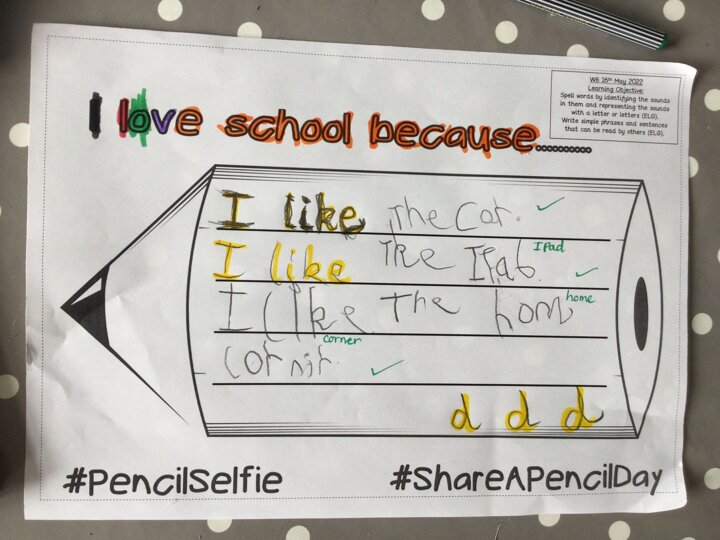 WB 16th May 2022
Learning Objective:
Spell words by identifying the sounds
in them and representing the sounds
with a letter or letters (ELG).
Write simple phrases and sentences
that can be read by others (ELG).
I love school because..........
I like The Car.
I like The IPab.
IPad
I like The hom
home
corner
cornir.
d d d
#PencilSelfie
#ShareAPencilDay